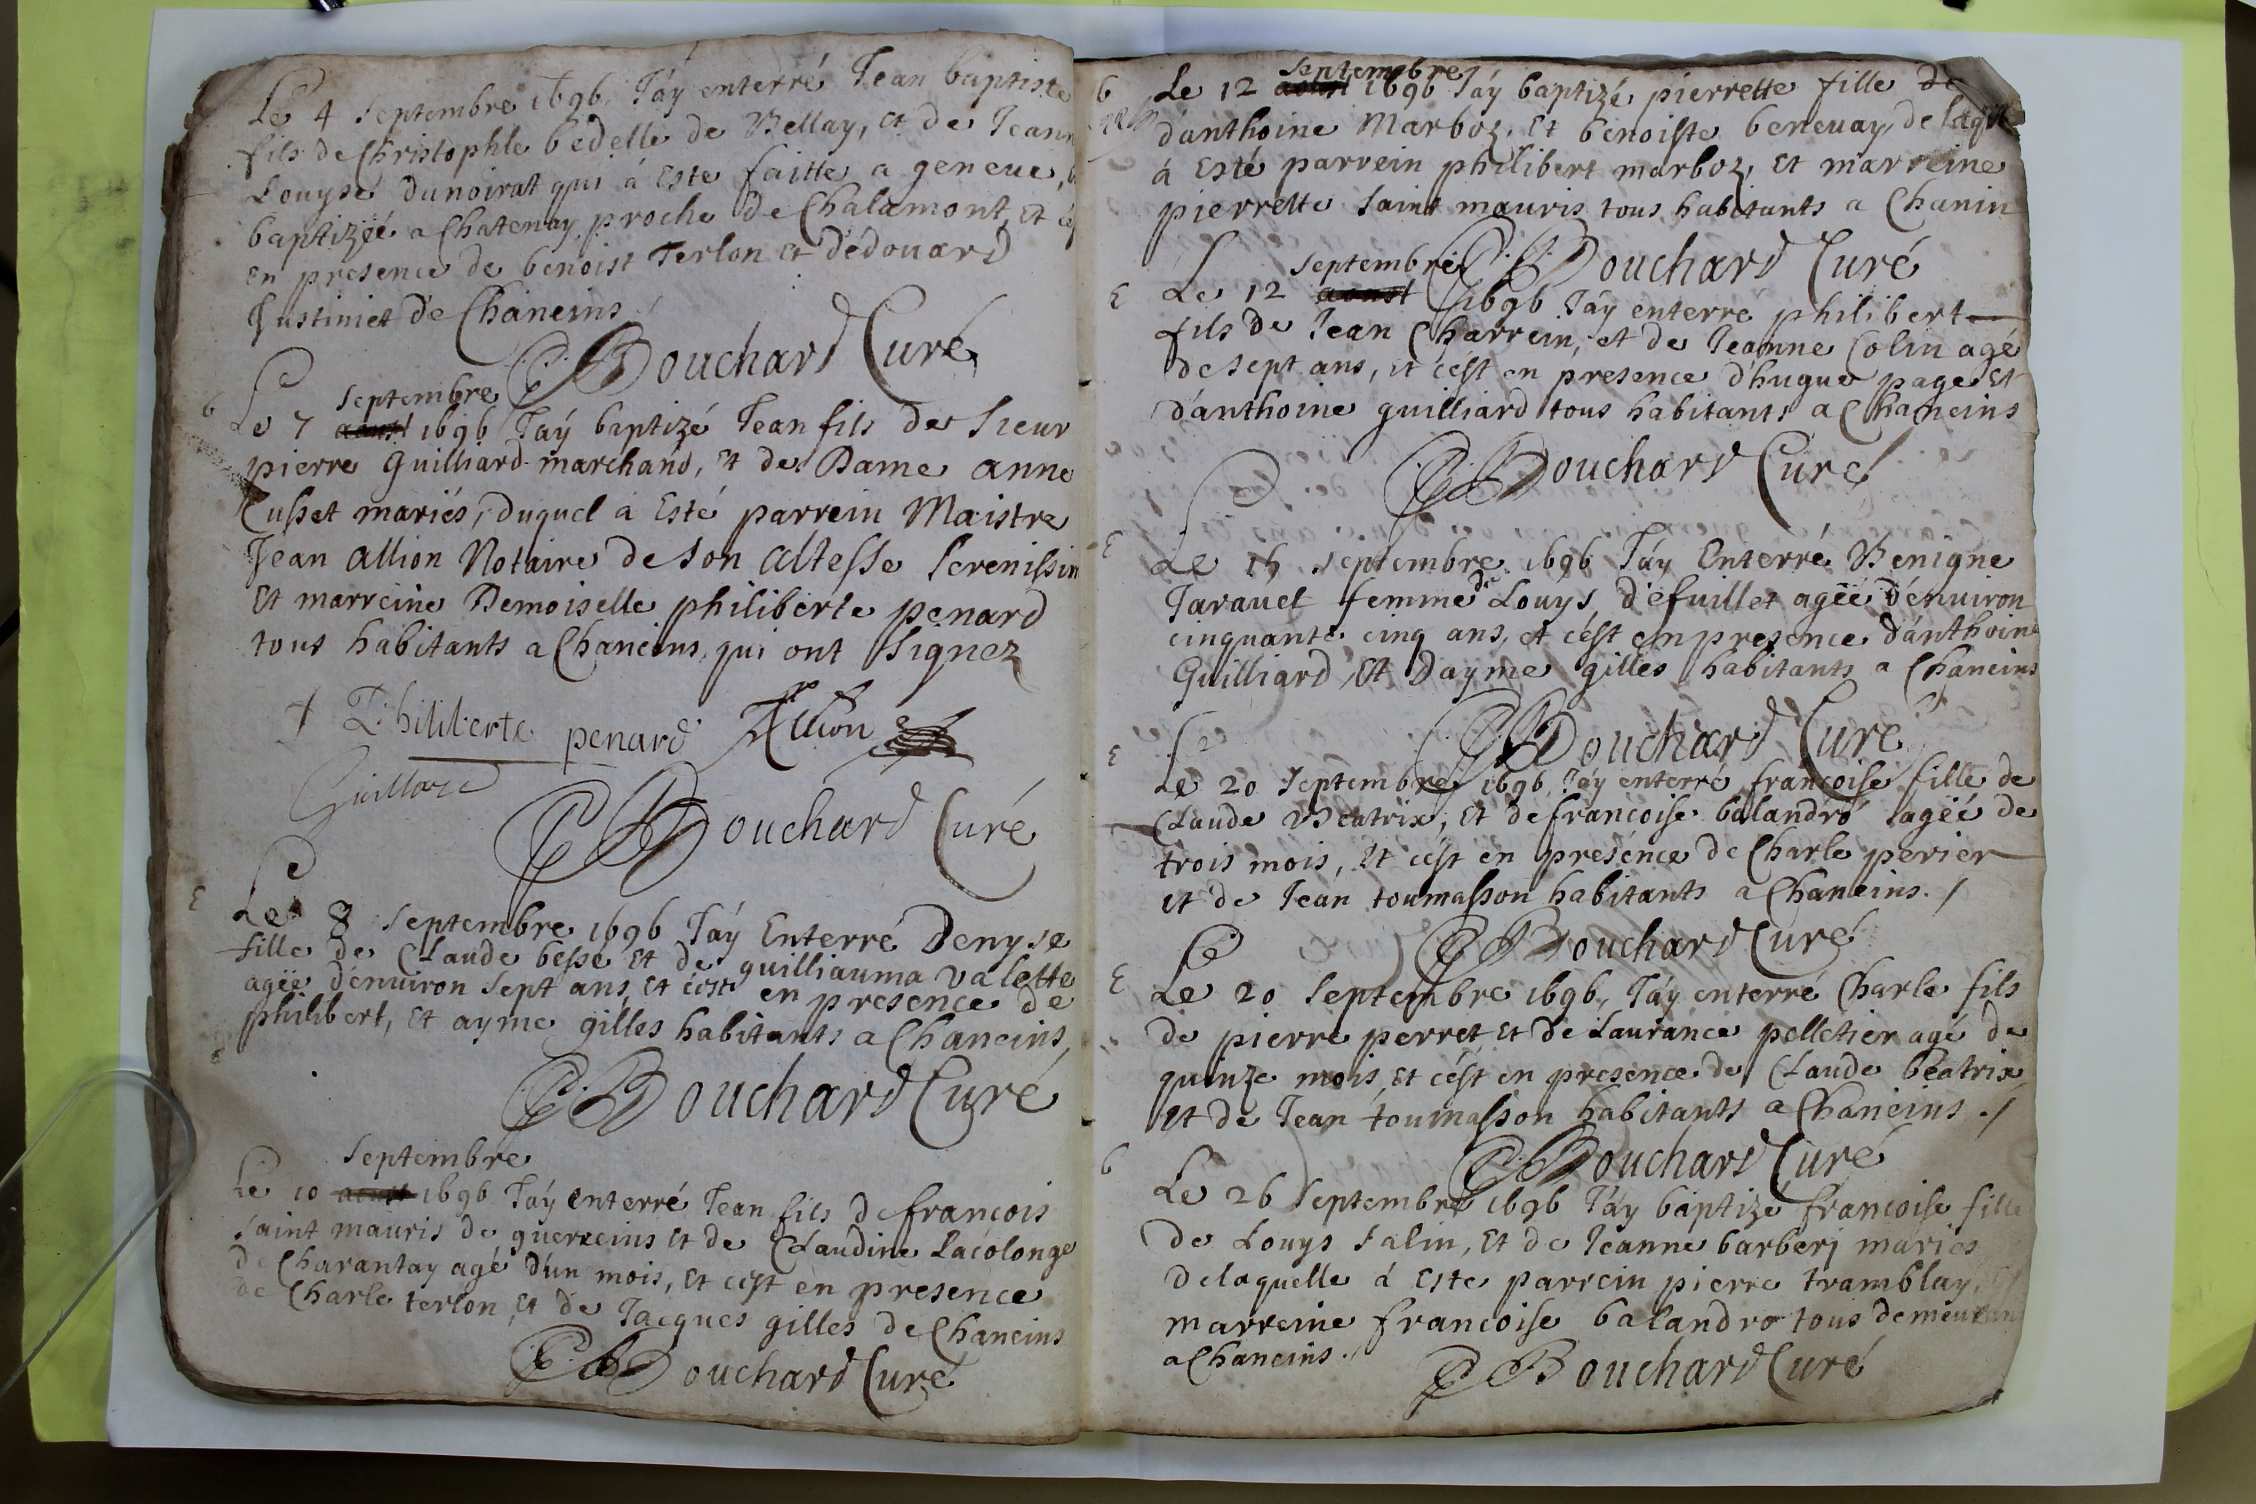 Le 4 Septembre 1696 Jáy enterré Jean baptiste
fils de Christophle bedelle de Bellay, et de Jeann
Louyse dunoirat qui á este faitte a geneue,
baptizéé a Chatenay proche de Chalamont, et
en presence de benoist Terlon et d'édouard
Justiniet de Chaneins
Bouchard Curé
b Septembre
Le 7 aoust 1696 Jáy baptizé Jean fils de Sieur
pierre Guilliard marchand, et de Dame anne
Cusset mariés, duquel a Esté parrein Maistre
Jean allion Notaire de son altesse Serenissim
Et marreine Demoiselle philiberte penard
tous habitants a Chaneins, qui ont Signez
Philiberte penard Allion
Guilliard
Bouchard Curé
E Le 8 Septembre 1696 Jáy Enterré Denyse
fille de Claude besse et de guilliauma Valette
ageë d'enuiron sept ans, et c'est en presence de
philibert, et ayme gilles habitants a Chaneins,
Bouchard Curé
Septembre
Le 10 aoust 1696 Jáy enterré Jean fils de francois
saint mauris de guerreins et de Claudine Lacolonge
de Charantay agé d'un mois, et c'est en presence
de Charle terlon, et de Jacques gilles de Chaneins
Bouchard Curé
b Septembre
Le 12 aoust 1696 Jáy baptizé pierrette fille de
danthoine Marboz, Et benoiste beneuay, de laqu
á Esté parrein philibert marboz, et marreine
pierrette saint mauris tous habitants a Chanin
Bouchard Curé
Septembre
E Le 12 aoust 1696 Jáy enterre philibert
fils de Jean Charrein, et de Jeanne Colin agé
de sept ans, et c'est en presence d'hugue page et
d'anthoine guilliard tous habitants a Chaneins
Bouchard Curé
E Le 15 septembre 1696 Jáy Enterré Benigne
Tarauet femme de Louys d'efuillet ageë d'enuiron
cinquante cinq ans, et c'est en presence d'anthoine
Guilliard, et dayme gilles habitants a Chaneins
Bouchard Curé
E Le 20 Septembre 1696 Jáy enterré francoise fille de
Claude Beatrix, et de francoise balandro ageë de
trois mois, et c'est en presence de Charle perier
et de Jean toumasson habitants a Chaneins./
Bouchard Curé
E Le 20 Septembre 1696, Jáy enterré Charle fils
de pierre perret et de Laurance pelletier agé de
quinze mois, et c'est en presence de Claude beatrix
et de Jean toumasson habitants a Chaneins ./
Bouchard Curé
b Le 26 Septembre 1696 Jáy baptizé francoise fille
de Louys salin, et de Jeanne barbery mariés
de laquelle á Este parrein pierre tramblay,
marreine francoise balandro tous demeuran
a Chaneins.
Bouchard Curé